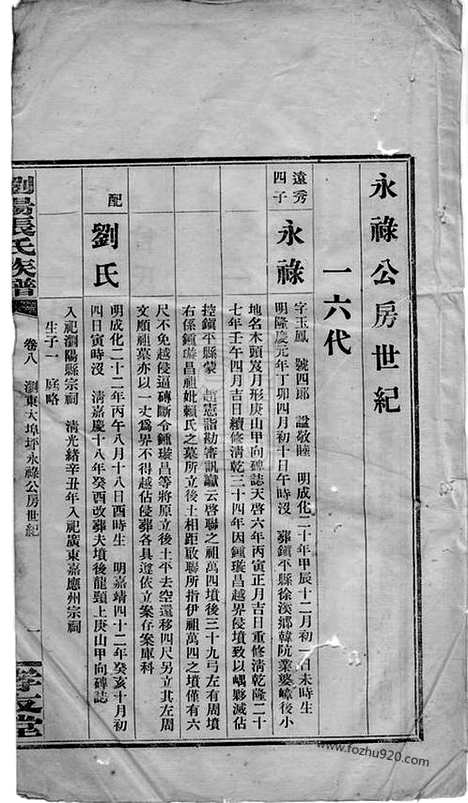 永祿公房世紀
一六代
遠秀四子
永祿
字玉鳳 號四郎 諡敬睦 明成化二十年甲辰十二月初一日未時生
明隆慶元年丁卯四月初十日午時沒 葬鎮平縣徐溪鄉韓阮業婆嶂後小
地名木頭岌月形庚山甲向碑誌天啓六年丙寅正月吉日重修清乾隆二十
七年壬午四月吉日續修清乾三十四年因鍾璇昌越界侵墳致以嵎夥滅佔
控鎮平縣蒙 趙憲詣勘審訊讞云啓聯之祖萬四墳後三十九弓左有周墳
右係鍾璇昌祖妣賴氏之墓所立後土相距啟聯所指伊祖萬四之墳僅有六
尺不免越侵逼磚斷令鍾璇昌等將原立後土平去空還移四尺另立其左周
文順祖墓亦以一丈爲界不得越佔侵葬各具遵依立案存案庫科
配
劉氏
明成化二十二年丙午八月十八日酉時生 明嘉靖四十二年癸亥十月初
四日寅時沒 清嘉慶十八年癸酉改葬夫墳後龍頸上庚山甲向碑誌
入祀瀏陽縣宗祠 清光緒辛丑年入祀廣東嘉應州宗祠
生子一 庭略
瀏陽張氏族譜
卷八 瀏東大埠坪永祿公房世紀
一
孝友堂
www.fozhu920.com